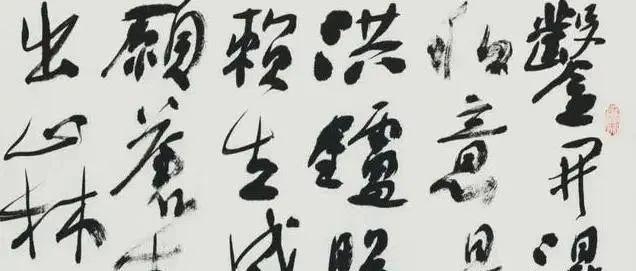 鑿開混
和意最
洪鑪照
賴生成
願蒼生
出山林